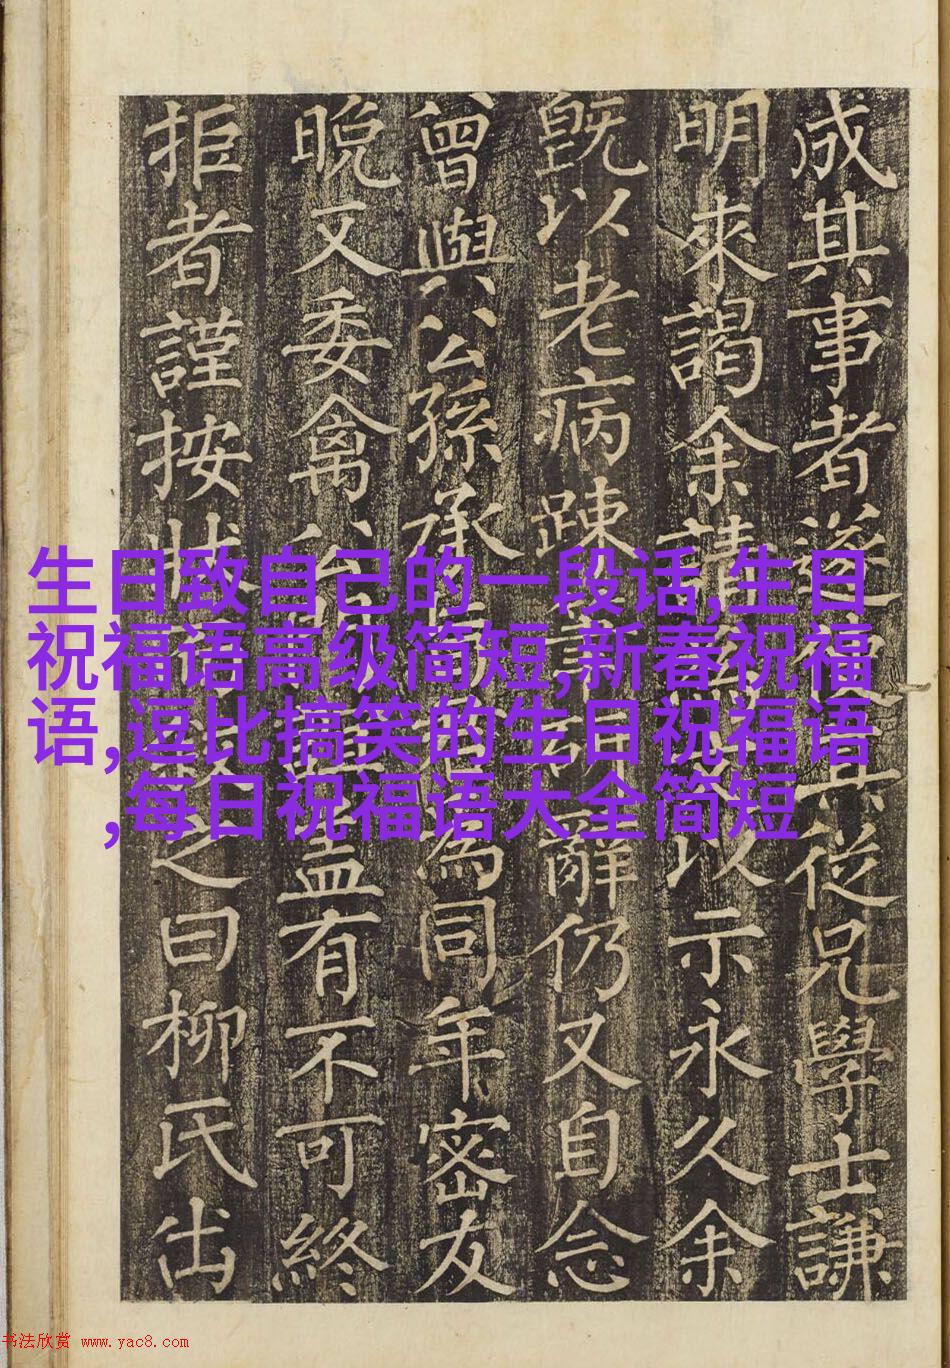 成其事者遂其從兄學士謙
明來謁余請以示永久余
既以老病踈辭仍又自念
曾與公孫承為同年密友
晚又委禽公盖有不可終
拒者謹按狀之曰柳氏出
生日致自己的一段话,生日
祝福语高级简短,新春祝福
语,逗比搞笑的生日祝福语
,每日祝福语大全简短
书法欣赏 www.yac8.com